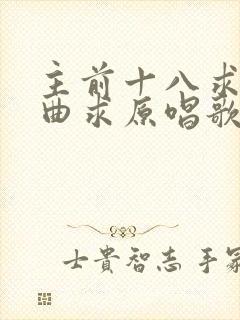 主前十八求
曲求原唱歌
士貴智志 手冢